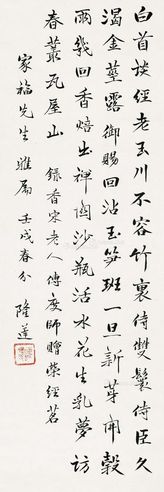 白首談經老玉川不容竹裏侍雙鬟侍臣久
渴金莖露御賜回沾玉笋班一旦新芽開穀
雨幾回香焙出禪關沙瓶活水花生乳夢訪
春叢瓦屋山
錄香宋老人傳度師贈蒙經茗
家福先生雅屬 壬戌春分 隆蓮